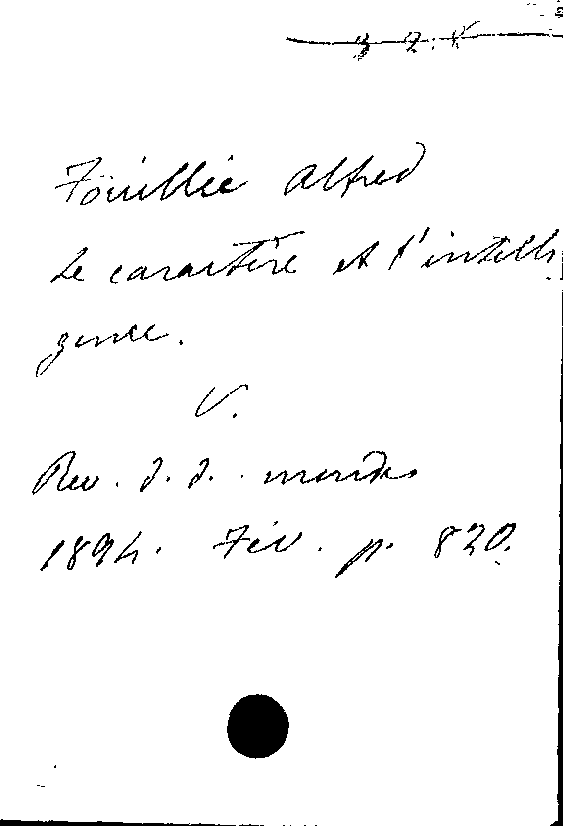 Fouillée Alfred
Le caractère et l'intelli
gence.
V.
Rev. d. d. mondes
1894. Fév. p. 820.